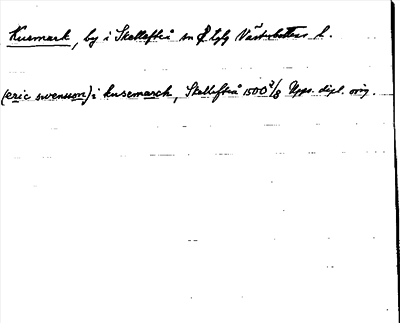 Kusmark, by i Skellefteå sn o. tg Västerbottens l.
(eric swensson) i kusemarck, Skellefteå 1500 2/8 Upps. dipl. orig.